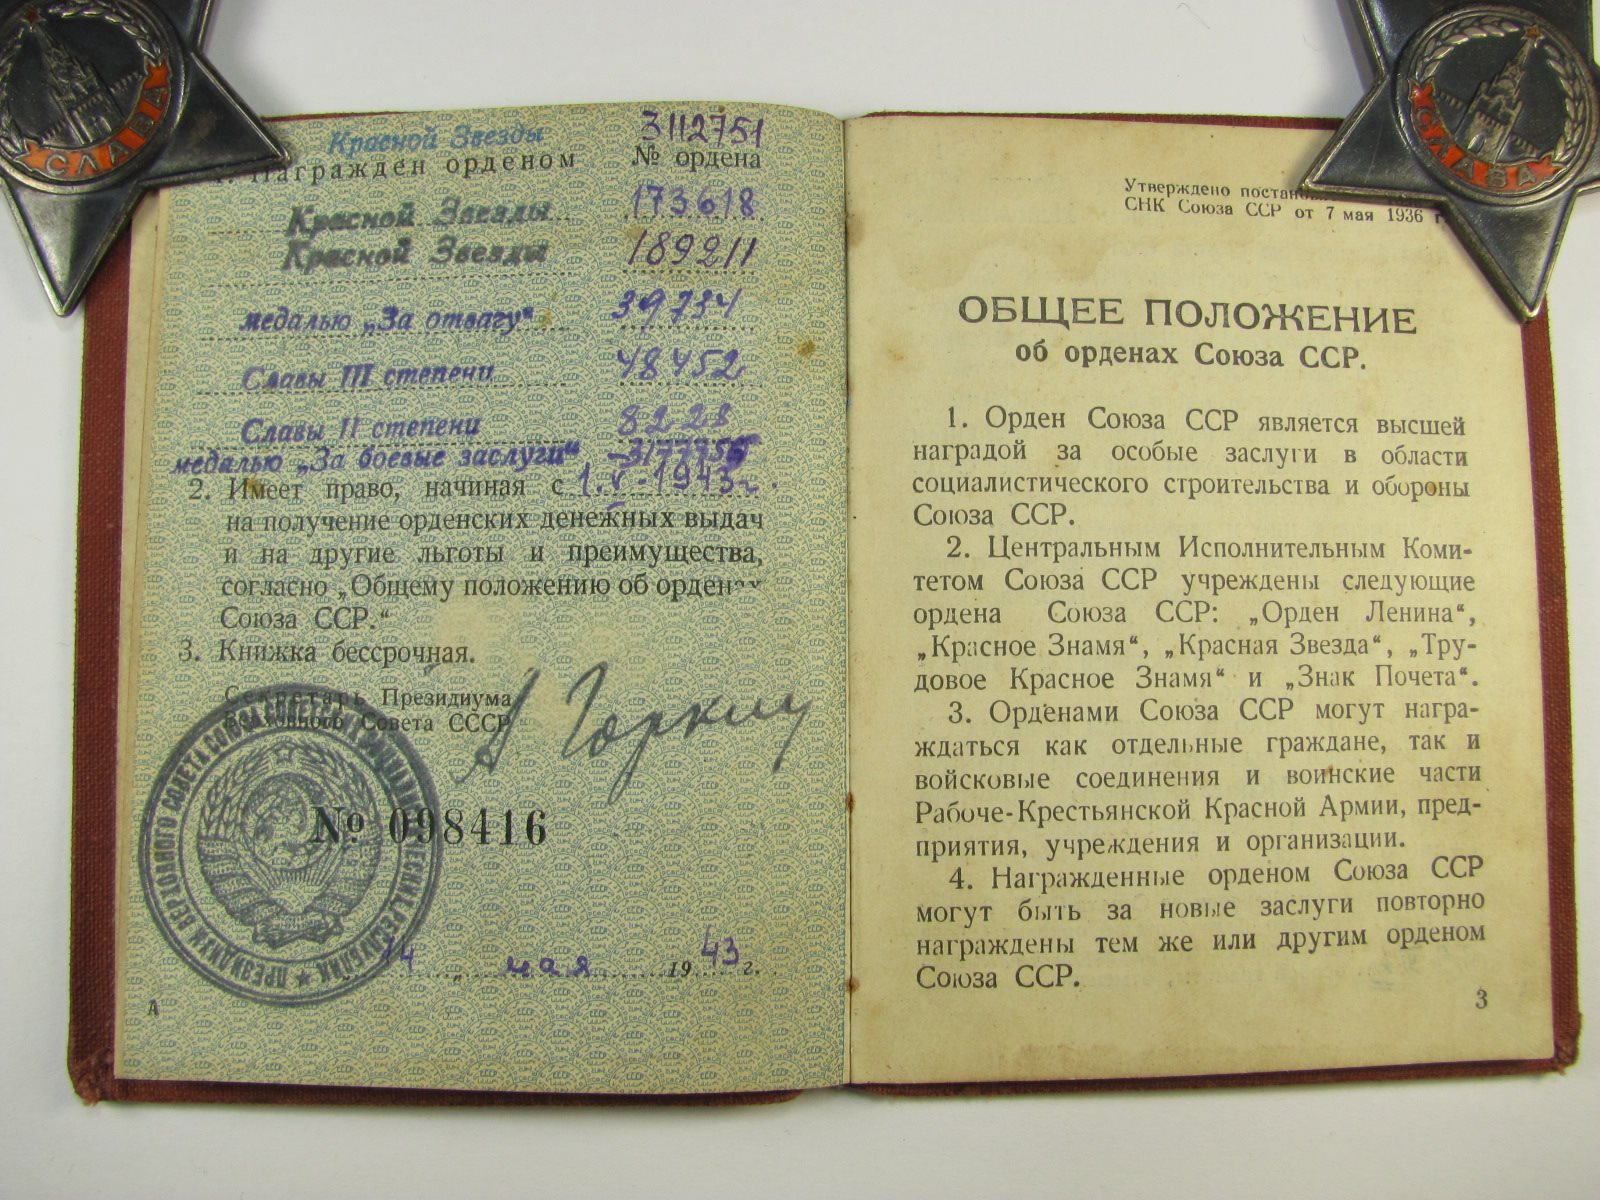 СЛАВА
СЛАВА
Красной Звезды 3112751
1. Награжден орденом № ордена
Красной Звезды 173618
Красной Звезды 189211
медалью „За отвагу“ 39734
Славы III степени 48452
Славы II степени 8228
медалью „За боевые заслуги“
2. Имеет право, начиная с 1.V-1943 г.
на получение орденских денежных выдач
и на другие льготы и преимущества,
согласно „Общему положению об орденах
Союза ССР.“
3. Книжка бессрочная.
Секретарь Президиума
Верховного Совета СССР
А Горкин
№ 098416
ПРЕЗИДИУМ ВЕРХОВНОГО СОВЕТА СОЮЗА СОВЕТСКИХ СОЦИАЛИСТИЧЕСКИХ РЕСПУБЛИК
14 „ мая 1943 г.
А
Утверждено
СНК Союза ССР от 7 мая 1936 г.
ОБЩЕЕ ПОЛОЖЕНИЕ
об орденах Союза ССР.
1. Орден Союза ССР является высшей
наградой за особые заслуги в области
социалистического строительства и обороны
Союза ССР.
2. Центральным Исполнительным Коми-
тетом Союза ССР учреждены следующие
ордена Союза ССР: „Орден Ленина“,
„Красное Знамя“, „Красная Звезда“, „Тру-
довое Красное Знамя“ и „Знак Почета“.
3. Орденами Союза ССР могут награ-
ждаться как отдельные граждане, так и
войсковые соединения и воинские части
Рабоче-Крестьянской Красной Армии, пред-
приятия, учреждения и организации.
4. Награжденные орденом Союза ССР
могут быть за новые заслуги повторно
награждены тем же или другим орденом
Союза ССР.
3